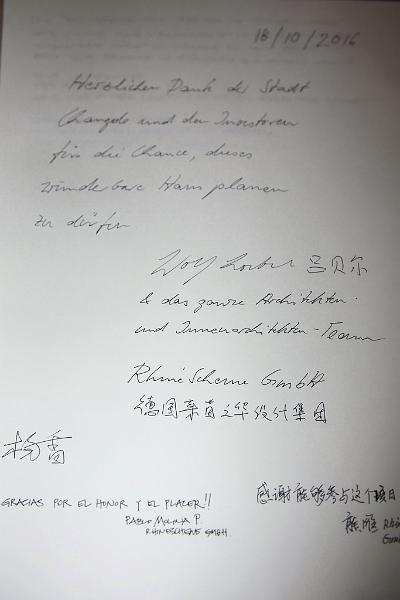 18/10/2016
Herzlichen Dank der Stadt
Changde und den Investoren
für die Chance, dieses
wunderbare Haus planen
zu dürfen
Wolf Loebel 吕贝尔
& das ganze Architekten-
und Innenarchitekten-Team
RhineScheme GmbH
德国莱茵之华设计集团
杨
GRACIAS POR EL HONOR Y EL PLACER!!
PABLO MOLINA P.
RHINESCHEME GMBH.
感谢能够参与这个项目
熊雁